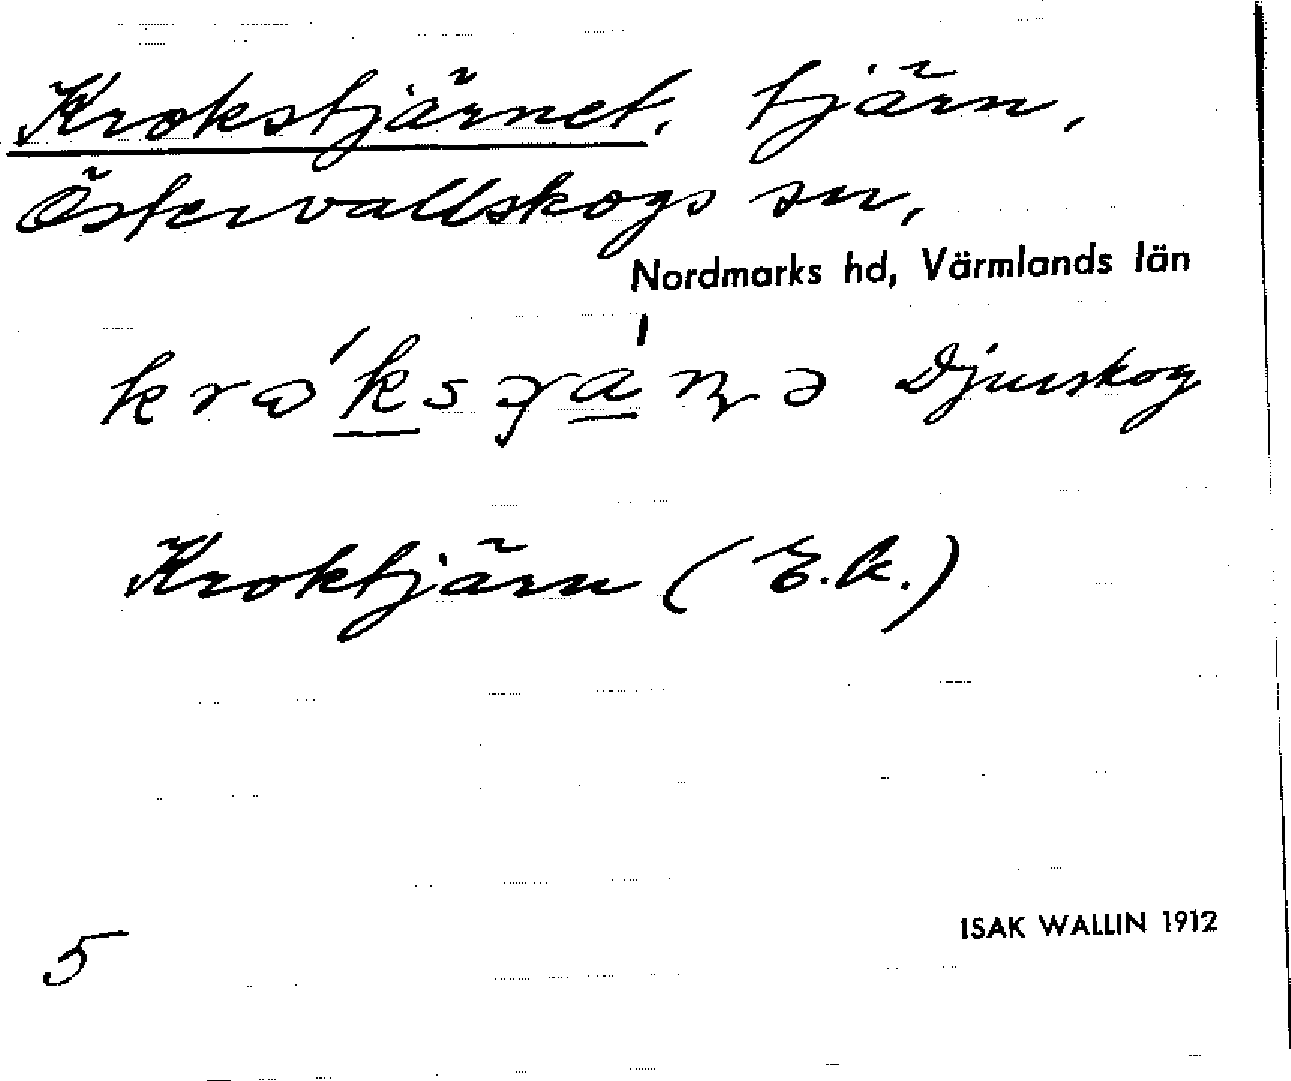 Krokstjärnet, tjärn,
Östervallskogs sn,
Nordmarks hd, Värmlands län
Djurskog
Kroktjärn (E.k.)
5
ISAK WALLIN 1912